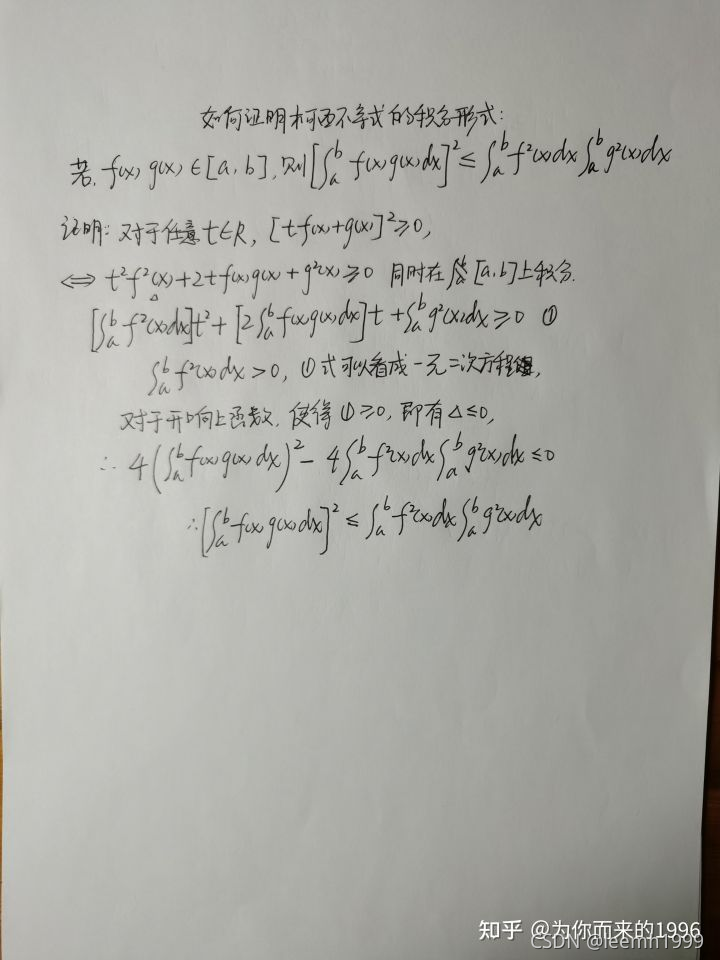 如何证明柯西不等式的积分形式:
若, f(x), g(x) ∈ [a, b], 则 [∫_a^b f(x)g(x)dx]² ≤ ∫_a^b f²(x)dx ∫_a^b g²(x)dx
证明: 对于任意 t∈R, [tf(x)+g(x)]² ≥ 0,
⟺ t²f²(x)+2tf(x)g(x)+g²(x) ≥ 0 同时在 [a, b] 上积分.
[∫_a^b f²(x)dx]t² + [2∫_a^b f(x)g(x)dx]t + ∫_a^b g²(x)dx ≥ 0 ①
∫_a^b f²(x)dx > 0, ①式可以看成一元二次方程,
对于开口向上函数, 使得 ① ≥ 0, 即有 Δ ≤ 0,
∴ 4(∫_a^b f(x)g(x)dx)² − 4∫_a^b f²(x)dx ∫_a^b g²(x)dx ≤ 0
∴ [∫_a^b f(x)g(x)dx]² ≤ ∫_a^b f²(x)dx ∫_a^b g²(x)dx
知乎 @为你而来的1996
CSDN @leemin1999